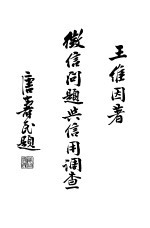 王维因著
徵信问题与信用调查
唐寿民题